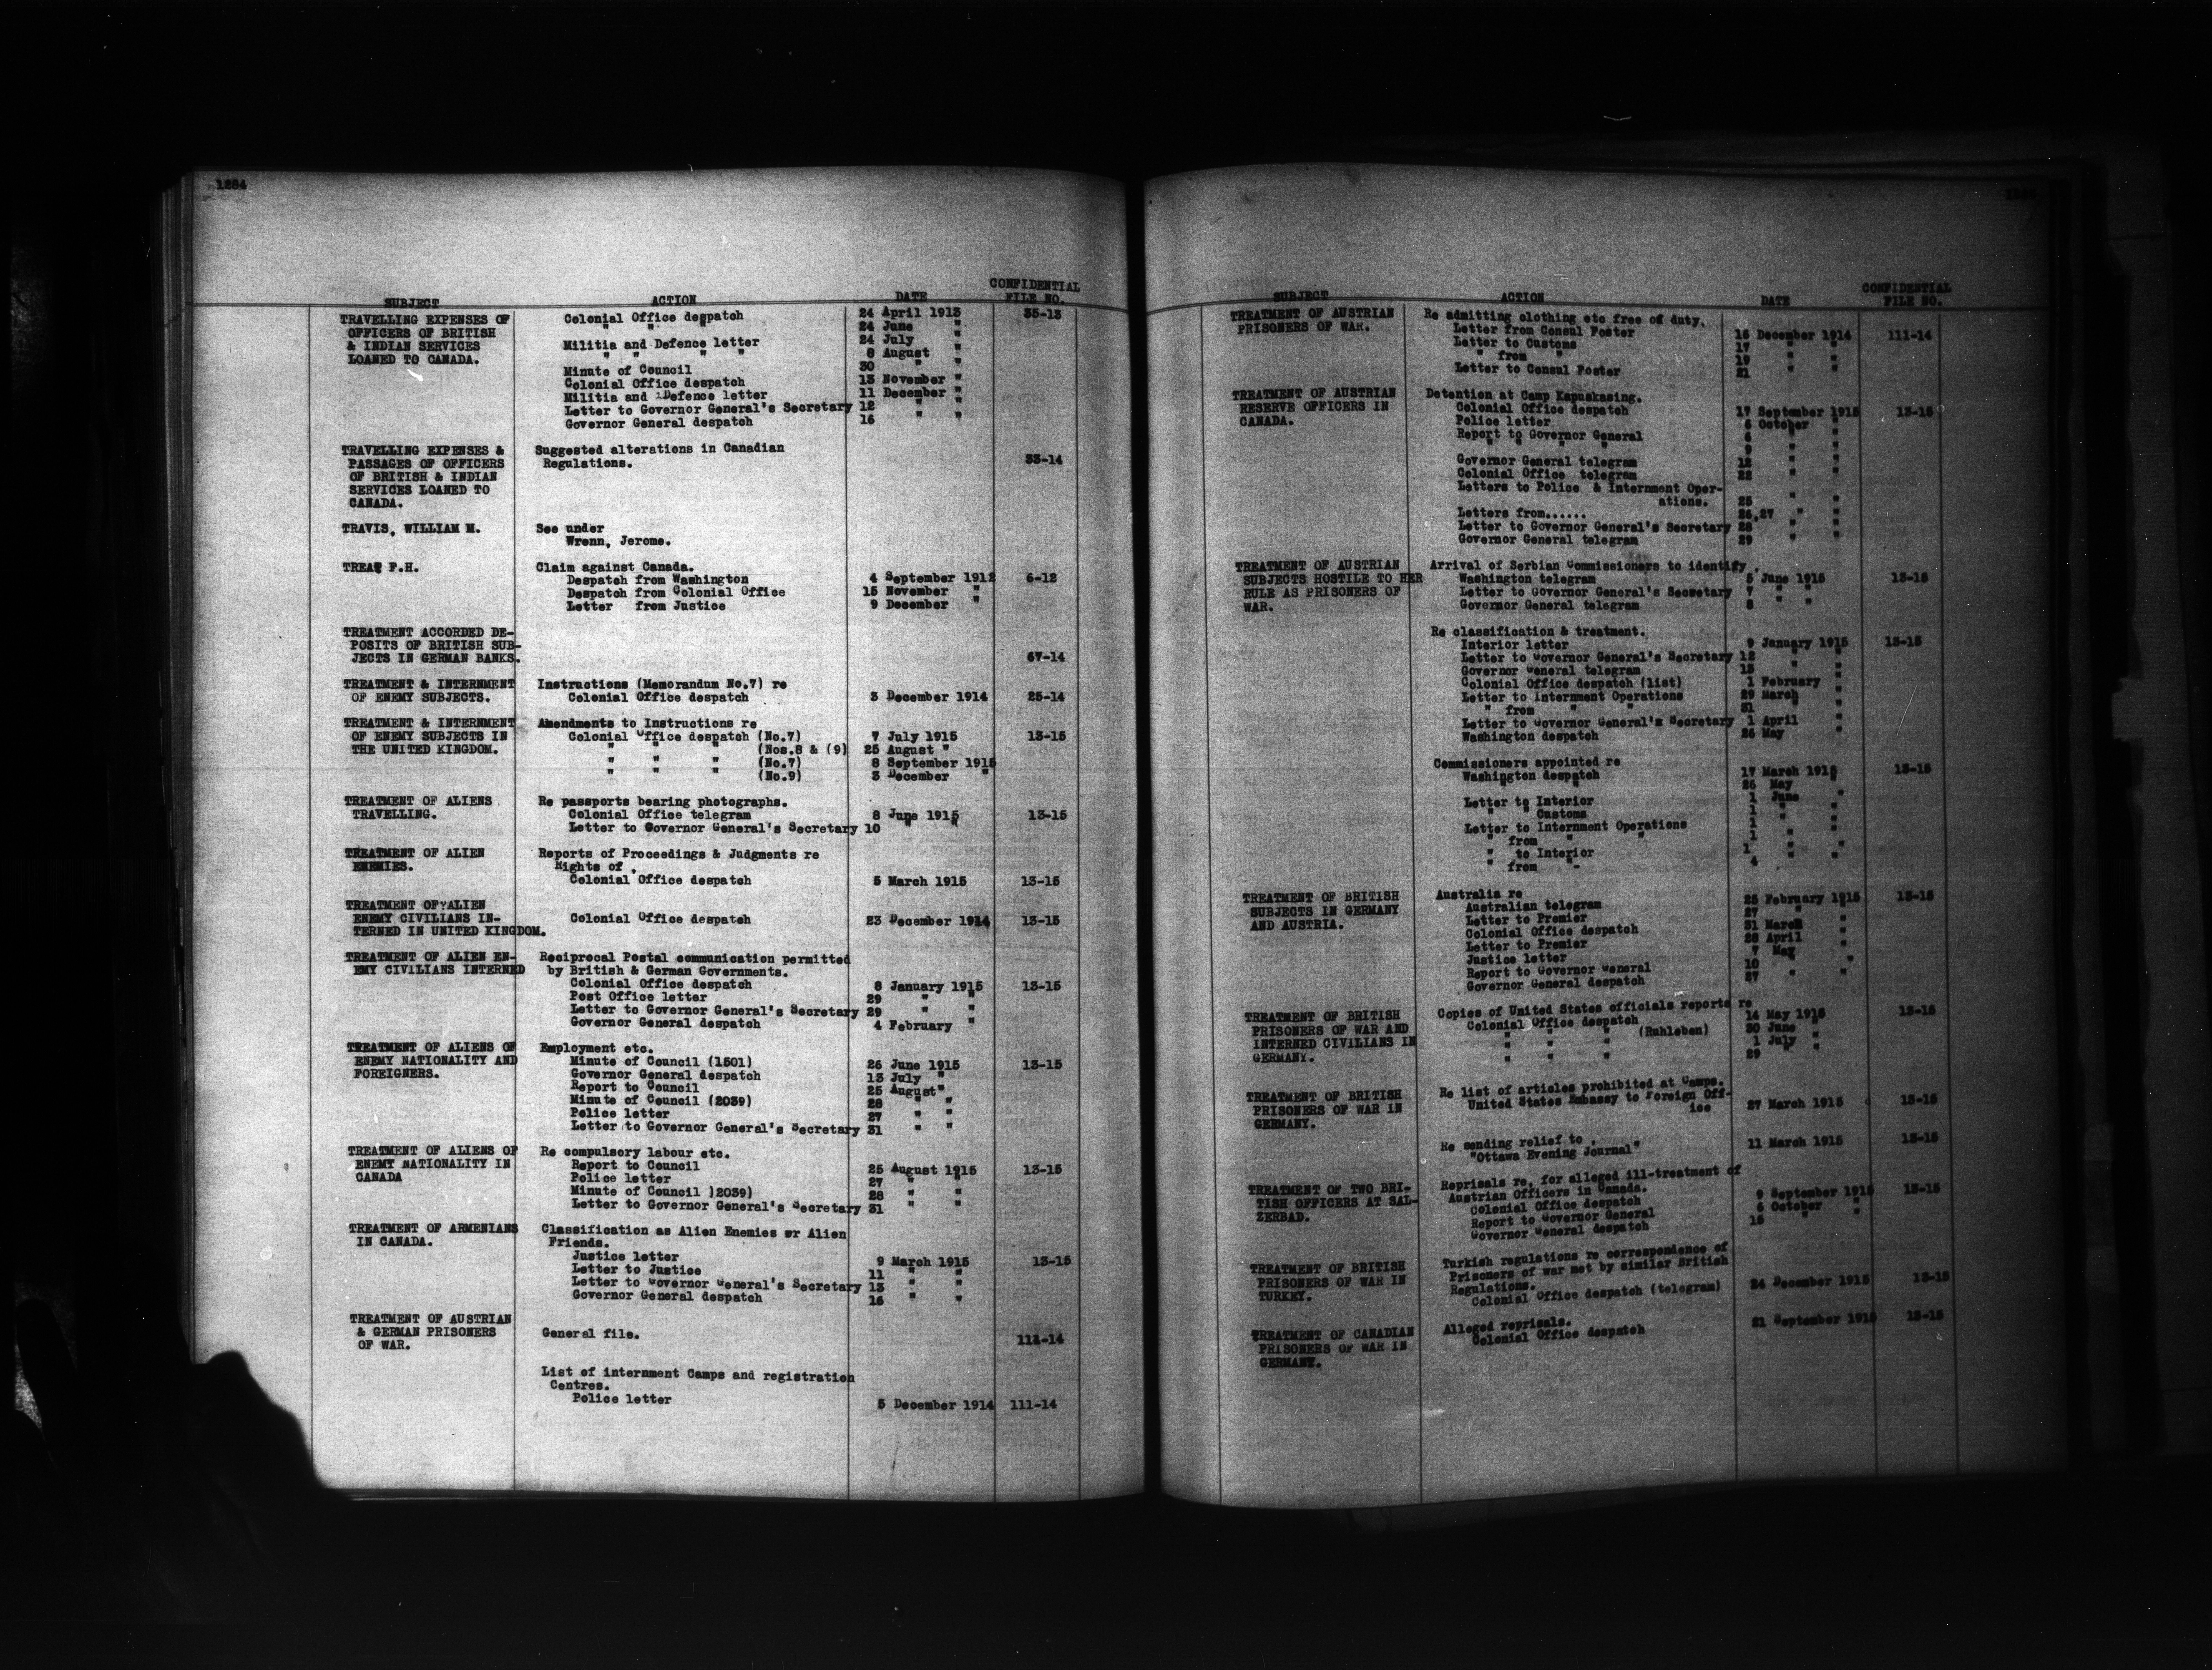 1284
SUBJECT ACTION DATE CONFIDENTIAL FILE NO.
TRAVELLING EXPENSES OF Colonial Office despatch 24 April 1913 35-13
OFFICERS OF BRITISH " " " 24 June "
& INDIAN SERVICES Militia and Defence letter 24 July "
LOANED TO CANADA. " " " " 8 August "
Minute of Council 30 " "
Colonial Office despatch 13 November "
Militia and Defence letter 11 December "
Letter to Governor General's Secretary 12 " "
Governor General despatch 16 " "
TRAVELLING EXPENSES & Suggested alterations in Canadian
PASSAGES OF OFFICERS Regulations. 33-14
OF BRITISH & INDIAN
SERVICES LOANED TO
CANADA.
TRAVIS, WILLIAM M. See under
Wrenn, Jerome.
TREAT F.H. Claim against Canada.
Despatch from Washington 4 September 1912 6-12
Despatch from Colonial Office 15 November "
Letter from Justice 9 December "
TREATMENT ACCORDED DE-
POSITS OF BRITISH SUB-
JECTS IN GERMAN BANKS. 67-14
TREATMENT & INTERNMENT Instructions (Memorandum No.7) re
OF ENEMY SUBJECTS. Colonial Office despatch 3 December 1914 25-14
TREATMENT & INTERNMENT Amendments to Instructions re
OF ENEMY SUBJECTS IN Colonial Office despatch (No.7) 7 July 1915 13-15
THE UNITED KINGDOM. " " " (Nos.8 & (9) 25 August "
" " " (No.7) 8 September 1915
" " " (No.9) 3 December "
TREATMENT OF ALIENS Re passports bearing photographs.
TRAVELLING. Colonial Office telegram 8 June 1915 13-15
Letter to Governor General's Secretary 10 " "
TREATMENT OF ALIEN Reports of Proceedings & Judgments re
ENEMIES. Rights of .
Colonial Office despatch 5 March 1915 13-15
TREATMENT OF ALIEN
ENEMY CIVILIANS IN- Colonial Office despatch 23 December 1914 13-15
TERNED IN UNITED KINGDOM.
TREATMENT OF ALIEN EN- Reciprocal Postal communication permitted
EMY CIVILIANS INTERNED by British & German Governments.
Colonial Office despatch 8 January 1915 13-15
Post Office letter 29 " "
Letter to Governor General's Secretary 29 " "
Governor General despatch 4 February "
TREATMENT OF ALIENS OF Employment etc.
ENEMY NATIONALITY AND Minute of Council (1501) 26 June 1915 13-15
FOREIGNERS. Governor General despatch 13 July "
Report to Council 25 August "
Minute of Council (2039) 28 " "
Police letter 27 " "
Letter to Governor General's Secretary 31 " "
TREATMENT OF ALIENS OF Re compulsory labour etc.
ENEMY NATIONALITY IN Report to Council 25 August 1915 13-15
CANADA Police letter 27 " "
Minute of Council )2039) 28 " "
Letter to Governor General's Secretary 31 " "
TREATMENT OF ARMENIANS Classification as Alien Enemies or Alien
IN CANADA. Friends.
Justice letter 9 March 1915 13-15
Letter to Justice 11 " "
Letter to Governor General's Secretary 13 " "
Governor General despatch 16 " "
TREATMENT OF AUSTRIAN
& GERMAN PRISONERS General file. 112-14
OF WAR.
List of internment Camps and registration
Centres.
Police letter 5 December 1914 111-14
SUBJECT ACTION DATE CONFIDENTIAL FILE NO.
TREATMENT OF AUSTRIAN Re admitting clothing etc free of duty.
PRISONERS OF WAR. Letter from Consul Foster 16 December 1914 111-14
Letter to Customs 17 " "
" from " 19 " "
Letter to Consul Foster 21 " "
TREATMENT OF AUSTRIAN Detention at Camp Kapuskasing.
RESERVE OFFICERS IN Colonial Office despatch 17 September 1915 13-15
CANADA. Police letter 6 October "
Report to Governor General 6 " "
" " " " 9 " "
Governor General telegram 12 " "
Colonial Office telegram 22 " "
Letters to Police & Internment Oper-
ations. 25 " "
Letters from...... 26,27 " "
Letter to Governor General's Secretary 28 " "
Governor General telegram 29 " "
TREATMENT OF AUSTRIAN Arrival of Serbian Commissioners to identify .
SUBJECTS HOSTILE TO HER Washington telegram 5 June 1915 13-15
RULE AS PRISONERS OF Letter to Governor General's Secretary 7 " "
WAR. Governor General telegram 8 " "
Re classification & treatment.
Interior letter 9 January 1915 13-15
Letter to Governor General's Secretary 12 " "
Governor General telegram 13 " "
Colonial Office despatch (list) 1 February "
Letter to Internment Operations 29 March "
" from " " 31 "
Letter to Governor General's Secretary 1 April "
Washington despatch 26 May "
Commissioners appointed re
Washington despatch 17 March 1915 13-15
" " 25 May "
Letter to Interior 1 June "
" " Customs 1 " "
Letter to Internment Operations 1 " "
" from " " 1 " "
" to Interior 1 " "
" from " 4
TREATMENT OF BRITISH Australia re
SUBJECTS IN GERMANY Australian telegram 25 February 1915 13-15
AND AUSTRIA. Letter to Premier 27 " "
Colonial Office despatch 31 March "
Letter to Premier 28 April "
Justice letter 7 May "
Report to Governor General 10 " "
Governor General despatch 27 " "
TREATMENT OF BRITISH Copies of United States officials reports re
PRISONERS OF WAR AND Colonial Office despatch 14 May 1915 13-15
INTERNED CIVILIANS IN " " " (Ruhleben) 30 June "
GERMANY. " " " 1 July "
" " " 29 " "
TREATMENT OF BRITISH Re list of articles prohibited at Camps.
PRISONERS OF WAR IN United States Embassy to Foreign Off-
GERMANY. ice 27 March 1915 13-15
Re sending relief to .
"Ottawa Evening Journal" 11 March 1915 13-15
TREATMENT OF TWO BRI- Reprisals re, for alleged ill-treatment of
TISH OFFICERS AT SAL- Austrian Officers in Canada.
ZERBAD. Colonial Office despatch 9 September 1915 13-15
Report to Governor General 6 October "
Governor General despatch 15 " "
TREATMENT OF BRITISH Turkish regulations re correspondence of
PRISONERS OF WAR IN Prisoners of war met by similar British
TURKEY. Regulations.
Colonial Office despatch (telegram) 24 December 1915 13-15
TREATMENT OF CANADIAN Alleged reprisals.
PRISONERS OF WAR IN Colonial Office despatch 21 September 1915 13-15
GERMANY.